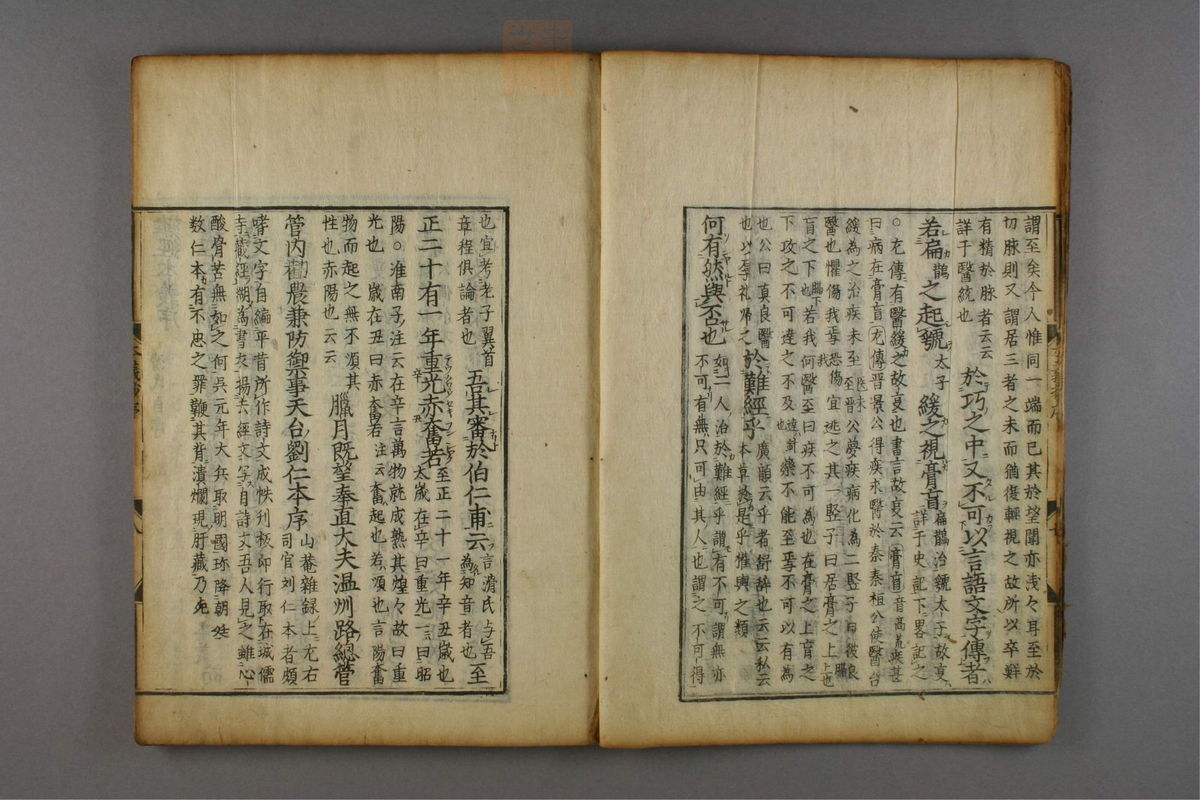 謂至矣今人惟同一端而已其於望聞亦浅々耳至於
切脉則又謂居三者之末而猶復輕視之故所以卒鮮
有精於脉者云云
詳于醫統也
於巧之中又不可以言語文字傳者
若扁鵲之起虢太子緩之視膏肓
扁鵲治虢太子故亥
詳于史記下畧記之
○左傳有醫緩之故亥也書言故亥云膏肓音高荒疾甚
曰病在膏肓左傳晋景公得疾求醫於秦秦桓公使醫
緩為之治疾未至至晋公夢疾病化為二竪子曰彼良
醫也懼傷我焉恐傷我宜逃之其一竪子曰居膏之上
肓之下也若我何醫至曰疾不可為也在膏之上肓之
下攻之不可達之不及藥不能至焉不可以有為
也公曰真良醫
於難經乎
廣韻云乎者舒辞也云云私云
也以厚礼帰之
本草於是乎惟與之類
何有然與否也
如二人治於難經乎謂有不可謂無亦
不可有無只可由其人也謂之不可得
也宜考老子翼首
章程俱論者也
吾其審於伯仁甫云
言滑氏与吾
為知音者也
至
正二十有一年重光赤奮若
至正二十一年辛丑歳也
太歳在辛曰重光一曰昭
陽○淮南子注云在辛言萬物就成熟其煌々故曰重
光也 歳在丑曰赤奮若注云奮起也若順也言陽奮
物而起之無不順其
性也赤陽也云云
臘月既望奉直大夫温州路總管
管内勸農兼防禦事天台劉仁本序
山菴雜録上左右
司官刘仁本者頗
嗜文字自編平昔所作詩文成帙刊板印行取在城儒
寺藏經湖為書衣揚去經文写自詩文吾人見之雖心
酸骨苦無如之何呉元年大兵取明國珎降朝廷
数仁本有不忠之罪鞭其背潰爛現肝藏乃死